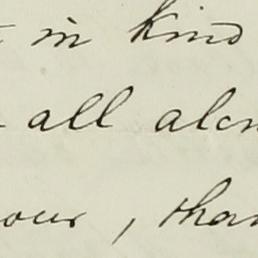 in kind
all alon
our, than